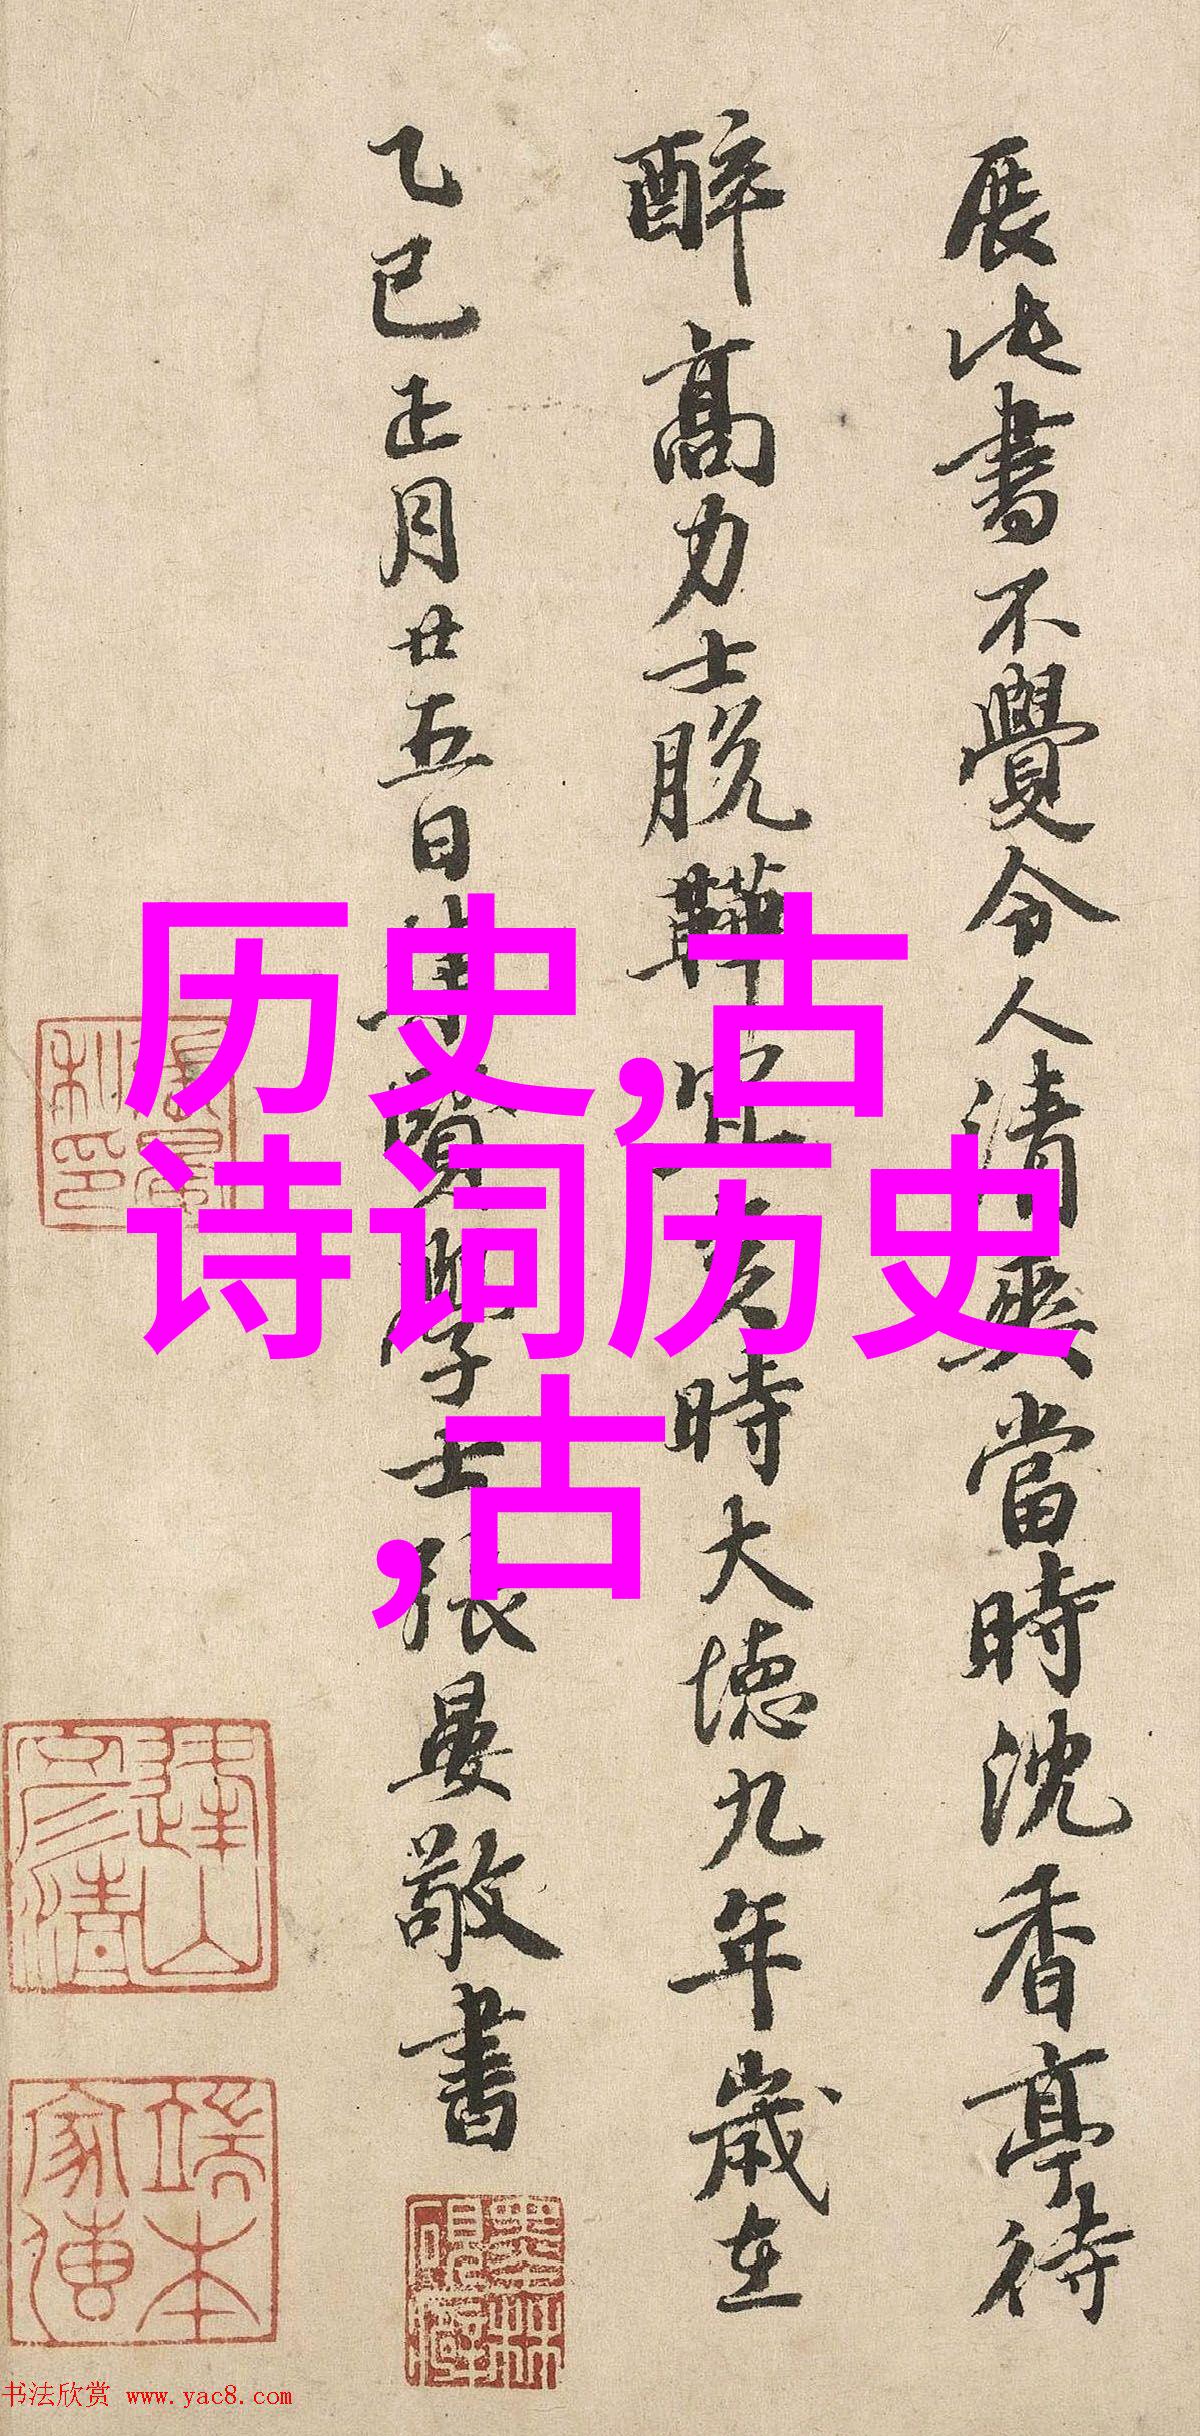 展此書不覺令人清爽當時沈香亭待
醉高力士脱鞾宜矣時大德九年歲在
乙巳正月廿五日集賢學士張晏敬書
历史,古
诗词历史
,古
书法欣赏 www.yac8.com